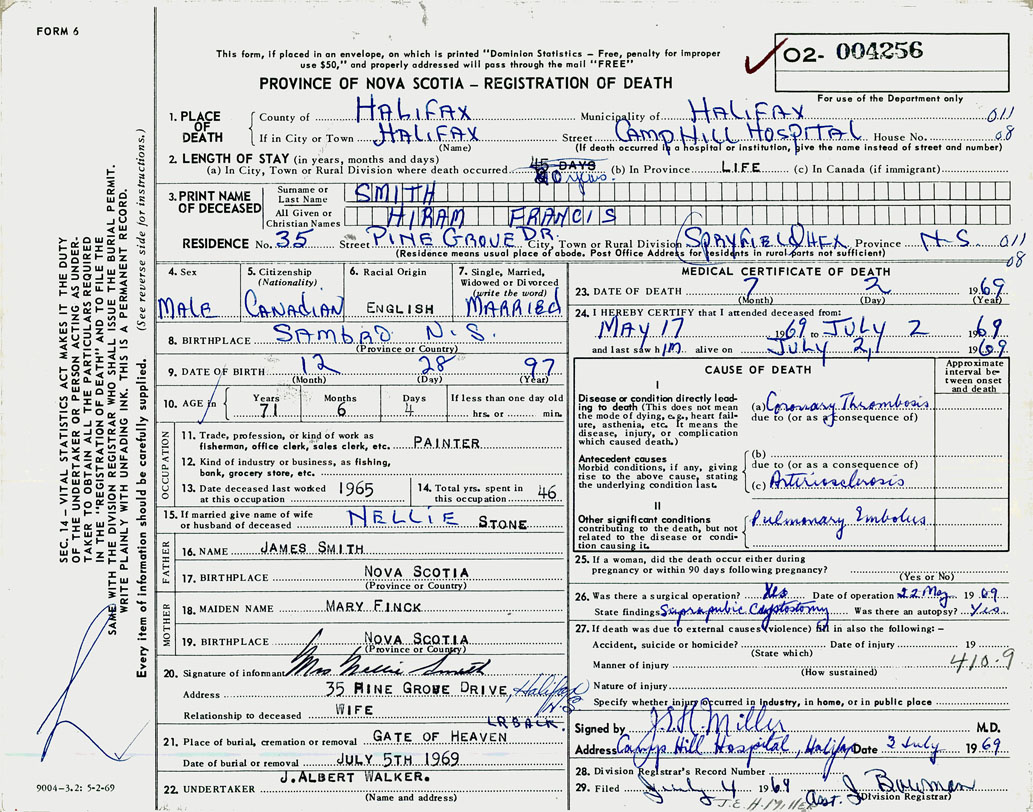 FORM 6
This form, if placed in an envelope, on which is printed "Dominion Statistics – Free, penalty for improper
use $50," and properly addressed will pass through the mail "FREE"
O2- 004256
PROVINCE OF NOVA SCOTIA – REGISTRATION OF DEATH
For use of the Department only
SEC. 14 – VITAL STATISTICS ACT MAKES IT THE DUTY
OF THE UNDERTAKER OR PERSON ACTING AS UNDER-
TAKER TO OBTAIN ALL THE PARTICULARS REQUIRED
IN THE "REGISTRATION OF DEATH" AND TO FILE THE
SAME WITH THE DIVISION REGISTRAR WHO SHALL ISSUE THE BURIAL PERMIT.
WRITE PLAINLY WITH UNFADING INK. THIS IS A PERMANENT RECORD.
Every item of information should be carefully supplied. (See reverse side for instructions.)
1. PLACE OF DEATH
County of HALIFAX Municipality of HALIFAX 011
If in City or Town HALIFAX Street CAMP HILL HOSPITAL House No. 08
(Name) (If death occurred in a hospital or institution, give the name instead of street and number)
2. LENGTH OF STAY (in years, months and days)
(a) In City, Town or Rural Division where death occurred 45 DAYS (b) In Province LIFE (c) In Canada (if immigrant)
years.
3. PRINT NAME OF DECEASED
Surname or Last Name SMITH
All Given or Christian Names HIRAM FRANCIS
RESIDENCE No. 35 Street PINE GROVE DR. City, Town or Rural Division SPRYFIELD HFX Province N-S 011
(Residence means usual place of abode. Post Office Address for residents in rural parts not sufficient) 08
4. Sex
MALE
5. Citizenship (Nationality)
CANADIAN
6. Racial Origin
ENGLISH
7. Single, Married, Widowed or Divorced (write the word)
MARRIED
8. BIRTHPLACE SAMBRO N.S.
(Province or Country)
9. DATE OF BIRTH 12 28 97
(Month) (Day) (Year)
10. AGE in Years Months Days If less than one day old
71 6 4 hrs. or min.
OCCUPATION
11. Trade, profession, or kind of work as
fisherman, office clerk, sales clerk, etc. PAINTER
12. Kind of industry or business, as fishing,
bank, grocery store, etc.
13. Date deceased last worked at this occupation 1965
14. Total yrs. spent in this occupation 46
15. If married give name of wife
or husband of deceased NELLIE STONE
FATHER
16. NAME JAMES SMITH
17. BIRTHPLACE NOVA SCOTIA
(Province or Country)
MOTHER
18. MAIDEN NAME MARY FINCK
19. BIRTHPLACE NOVA SCOTIA
(Province or Country)
20. Signature of informant Mrs Nellie Smith
Address 35 PINE GROVE DRIVE, Halifax N.S.
Relationship to deceased WIFE
LR BACK.
21. Place of burial, cremation or removal GATE OF HEAVEN
Date of burial or removal JULY 5TH 1969
22. UNDERTAKER J. ALBERT WALKER.
(Name and address)
9004-3.2: 5-2-69
MEDICAL CERTIFICATE OF DEATH
23. DATE OF DEATH 7 2 1969
(Month) (Day) (Year)
24. I HEREBY CERTIFY that I attended deceased from:
MAY 17 1969 to JULY 2 1969
and last saw him alive on JULY 2, 1969
CAUSE OF DEATH
Approximate interval between onset and death
I
Disease or condition directly lead-
ing to death (This does not mean
the mode of dying, e.g., heart fail-
ure, asthenia, etc. It means the
disease, injury, or complication
which caused death.)
(a) Coronary Thrombosis
due to (or as a consequence of)
Antecedent causes
Morbid conditions, if any, giving
rise to the above cause, stating
the underlying condition last.
(b)
due to (or as a consequence of)
(c) Arteriosclerosis
II
Other significant conditions
contributing to the death, but not
related to the disease or condi-
tion causing it.
Pulmonary Embolus
25. If a woman, did the death occur either during
pregnancy or within 90 days following pregnancy?
(Yes or No)
26. Was there a surgical operation? Yes Date of operation 22 May 1969
State findings Suprapubic Cystostomy Was there an autopsy? Yes
27. If death was due to external causes (violence) fill in also the following: –
Accident, suicide or homicide? Date of injury 19
(State which)
Manner of injury 410.9
(How sustained)
Nature of injury
Specify whether injury occurred in Industry, in home, or in public place
Signed by J.E.H. Miller M.D.
Address Camp Hill Hospital, Halifax Date 2 July 1969
28. Division Registrar's Record Number
29. Filed July 4 1969 Asst. J Bowman
Division Registrar
J.E.H. Miller